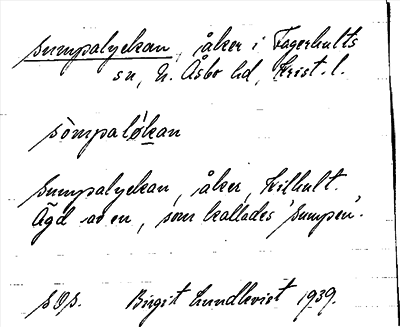 Sumpalyckan, åker i Fagerhults
sn, N. Åsbo hd, Krist. l.
sòmpaløkan
Sumpalyckan, åker, Kilhult.
Ägd av en, som kallades 'Sumpen'.
Birgit Lundkvist 1939.